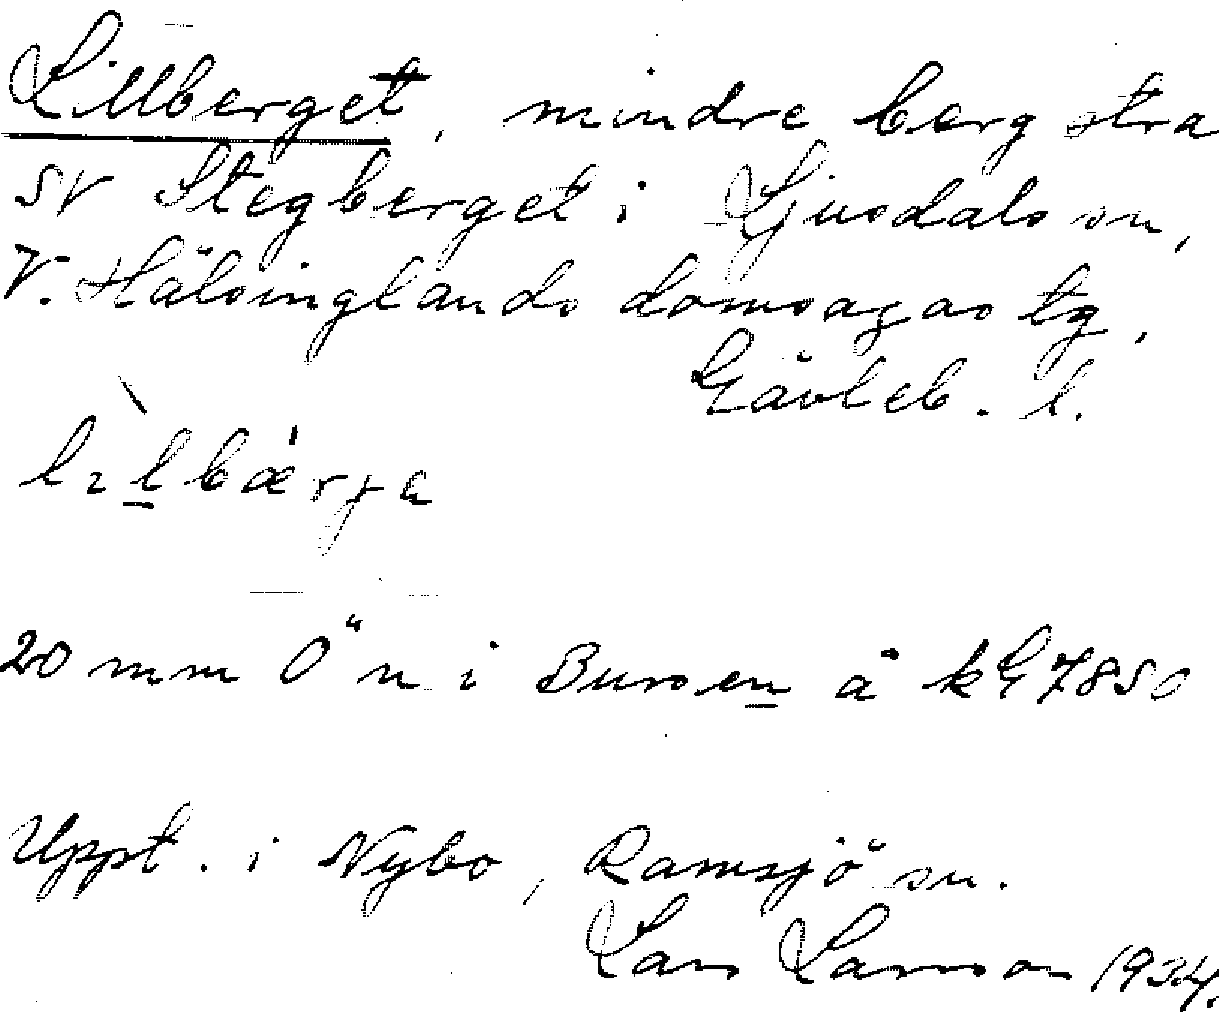 Lillberget, mindre berg stra
SV Stegberget i Ljusdals sn,
V. Hälsinglands domsagas tg,
Gävleb. l.
lilbærja
20 mm Ö n i Bursen å kG 7850
Uppt. i Nybo, Ramsjö sn.
Lars Larsson 1934.